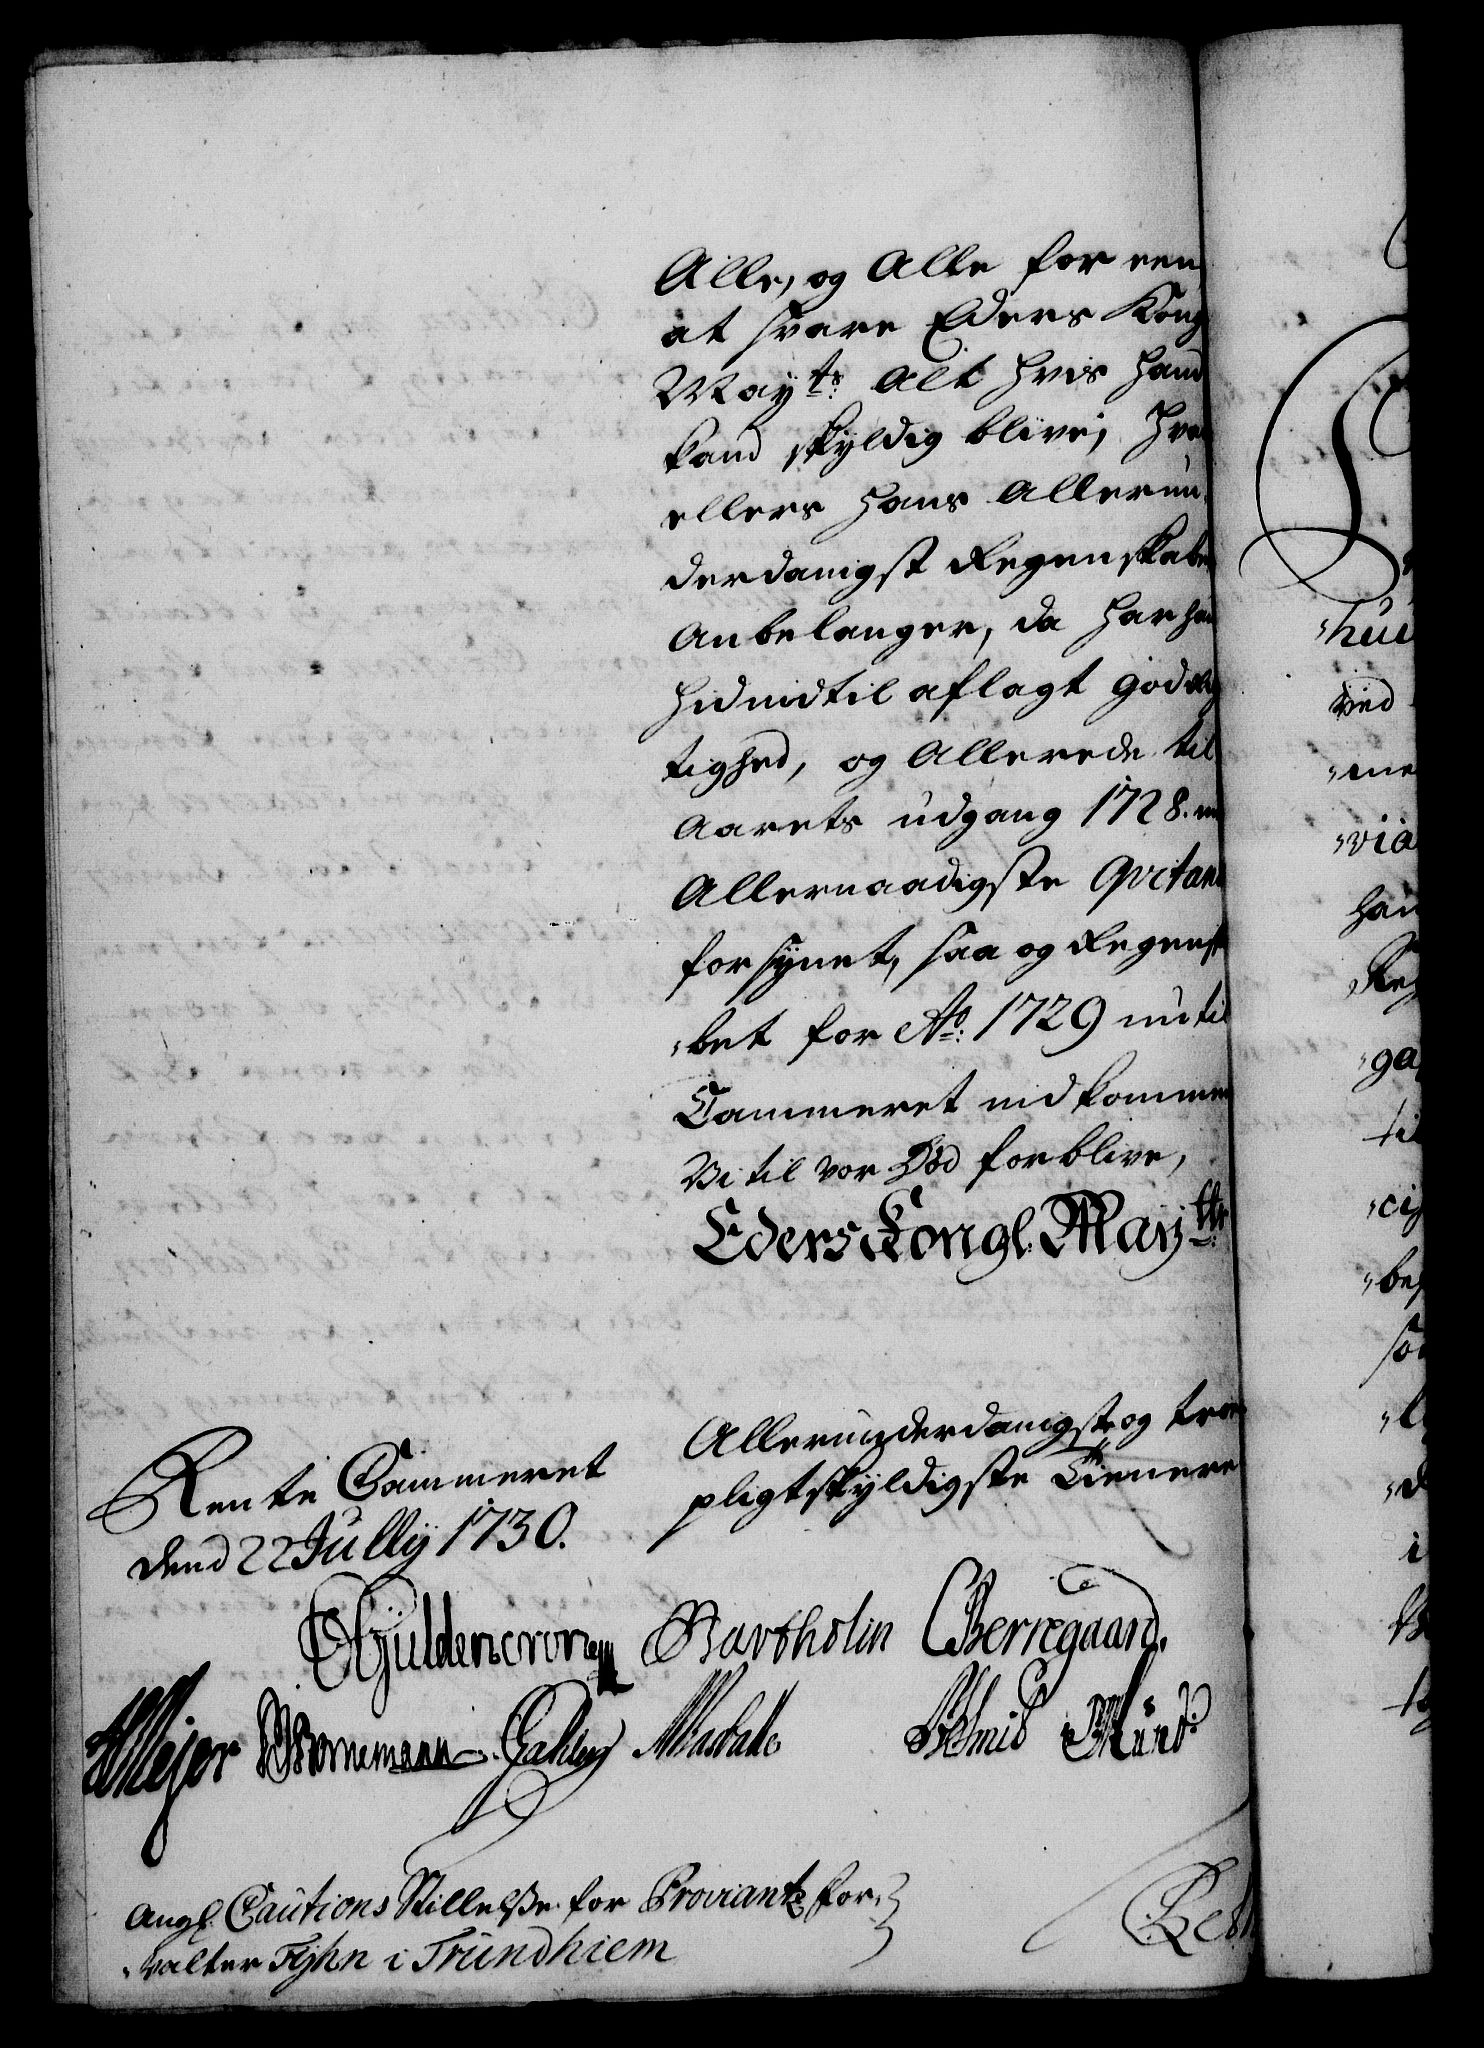 Alle, og Alle for een
at svare Eders Kong
May.ts Alt hvis hand
kand skyldig blive, hva
ellers hans Allerun-
derdanigst Regenskaber
Anbelanger, da har han
hidindtil aflagt god Rig
tighed, og Allerede til
Aarets udgang 1728. m
Allernaadigste Qvitan
forsynet, saa og Regensk
bet for Ao: 1729 nu til
Cammeret indkommen
Vi til vor Död forblive,
Eders Kongl. May.tts
Allerunderdanigste og troe
pligtskyldigste Tienere
Rente Cammeret
dend 22 Jully 1730.
Güldencrone Bartholin CBerregaard.
Mejer Bornemann
Angl. Cautions Stillelsse for Proviantz for-
valter Fyhn i Trundhiem